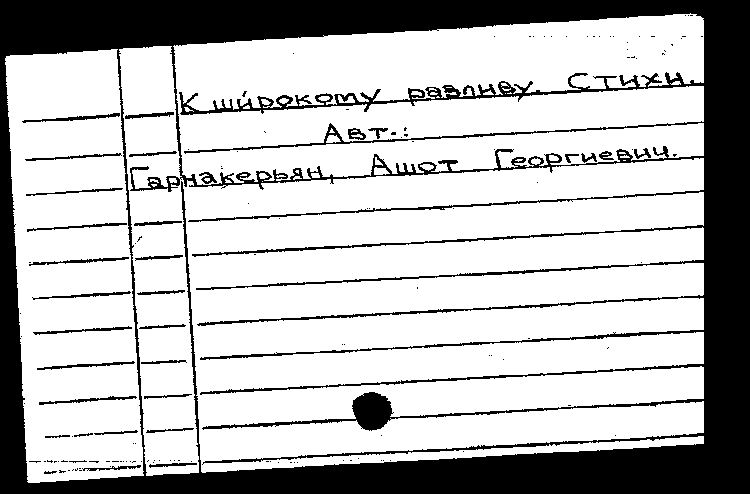 К широкому разливу. Стихи.
Авт.:
Гарнакерьян, Ашот Георгиевич.